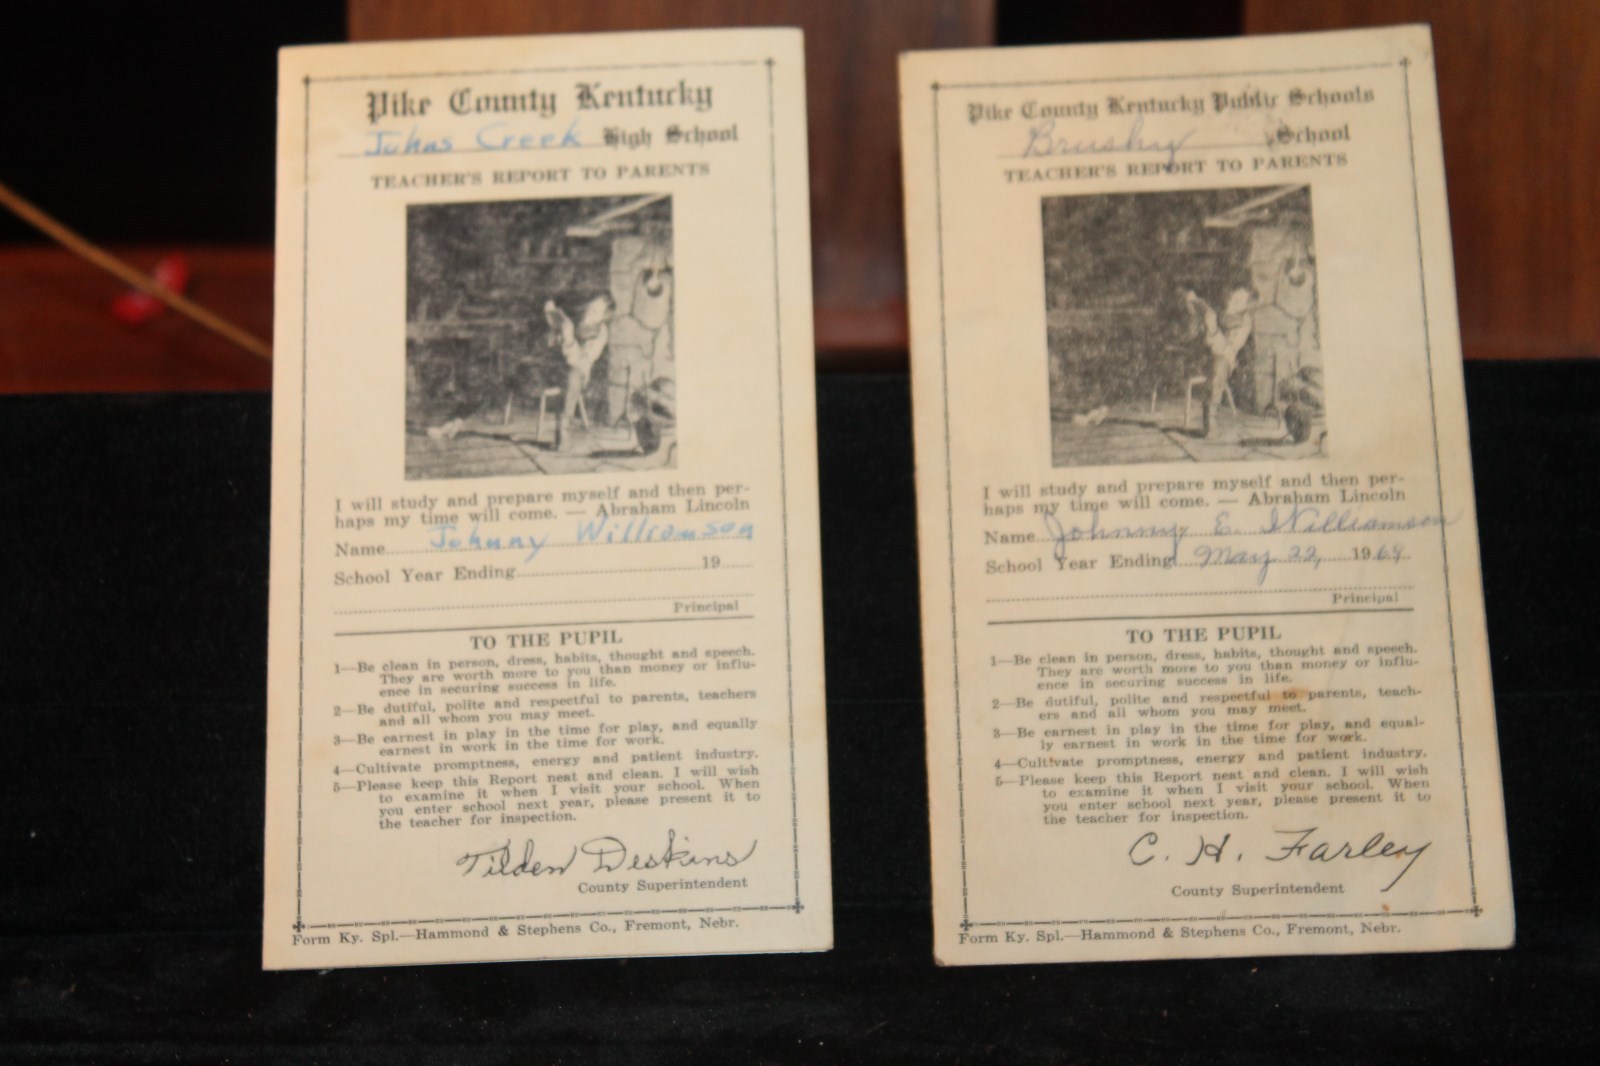 Pike County Kentucky
Johns Creek High School
TEACHER'S REPORT TO PARENTS
I will study and prepare myself and then per-
haps my time will come. — Abraham Lincoln
Name Johnny Williamson
School Year Ending 19
Principal
TO THE PUPIL
1—Be clean in person, dress, habits, thought and speech.
They are worth more to you than money or influ-
ence in securing success in life.
2—Be dutiful, polite and respectful to parents, teachers
and all whom you may meet.
3—Be earnest in play in the time for play, and equally
earnest in work in the time for work.
4—Cultivate promptness, energy and patient industry.
5—Please keep this Report neat and clean. I will wish
to examine it when I visit your school. When
you enter school next year, please present it to
the teacher for inspection.
Tilden Deskins
County Superintendent
Form Ky. Spl.—Hammond & Stephens Co., Fremont, Nebr.
Pike County Kentucky Public Schools
Brushy School
TEACHER'S REPORT TO PARENTS
I will study and prepare myself and then per-
haps my time will come. — Abraham Lincoln
Name Johnny E. Williamson
School Year Ending May 22, 1969
Principal
TO THE PUPIL
1—Be clean in person, dress, habits, thought and speech.
They are worth more to you than money or influ-
ence in securing success in life.
2—Be dutiful, polite and respectful to parents, teach-
ers and all whom you may meet.
3—Be earnest in play in the time for play, and equal-
ly earnest in work in the time for work.
4—Cultivate promptness, energy and patient industry.
5—Please keep this Report neat and clean. I will wish
to examine it when I visit your school. When
you enter school next year, please present it to
the teacher for inspection.
C. H. Farley
County Superintendent
Form Ky. Spl.—Hammond & Stephens Co., Fremont, Nebr.